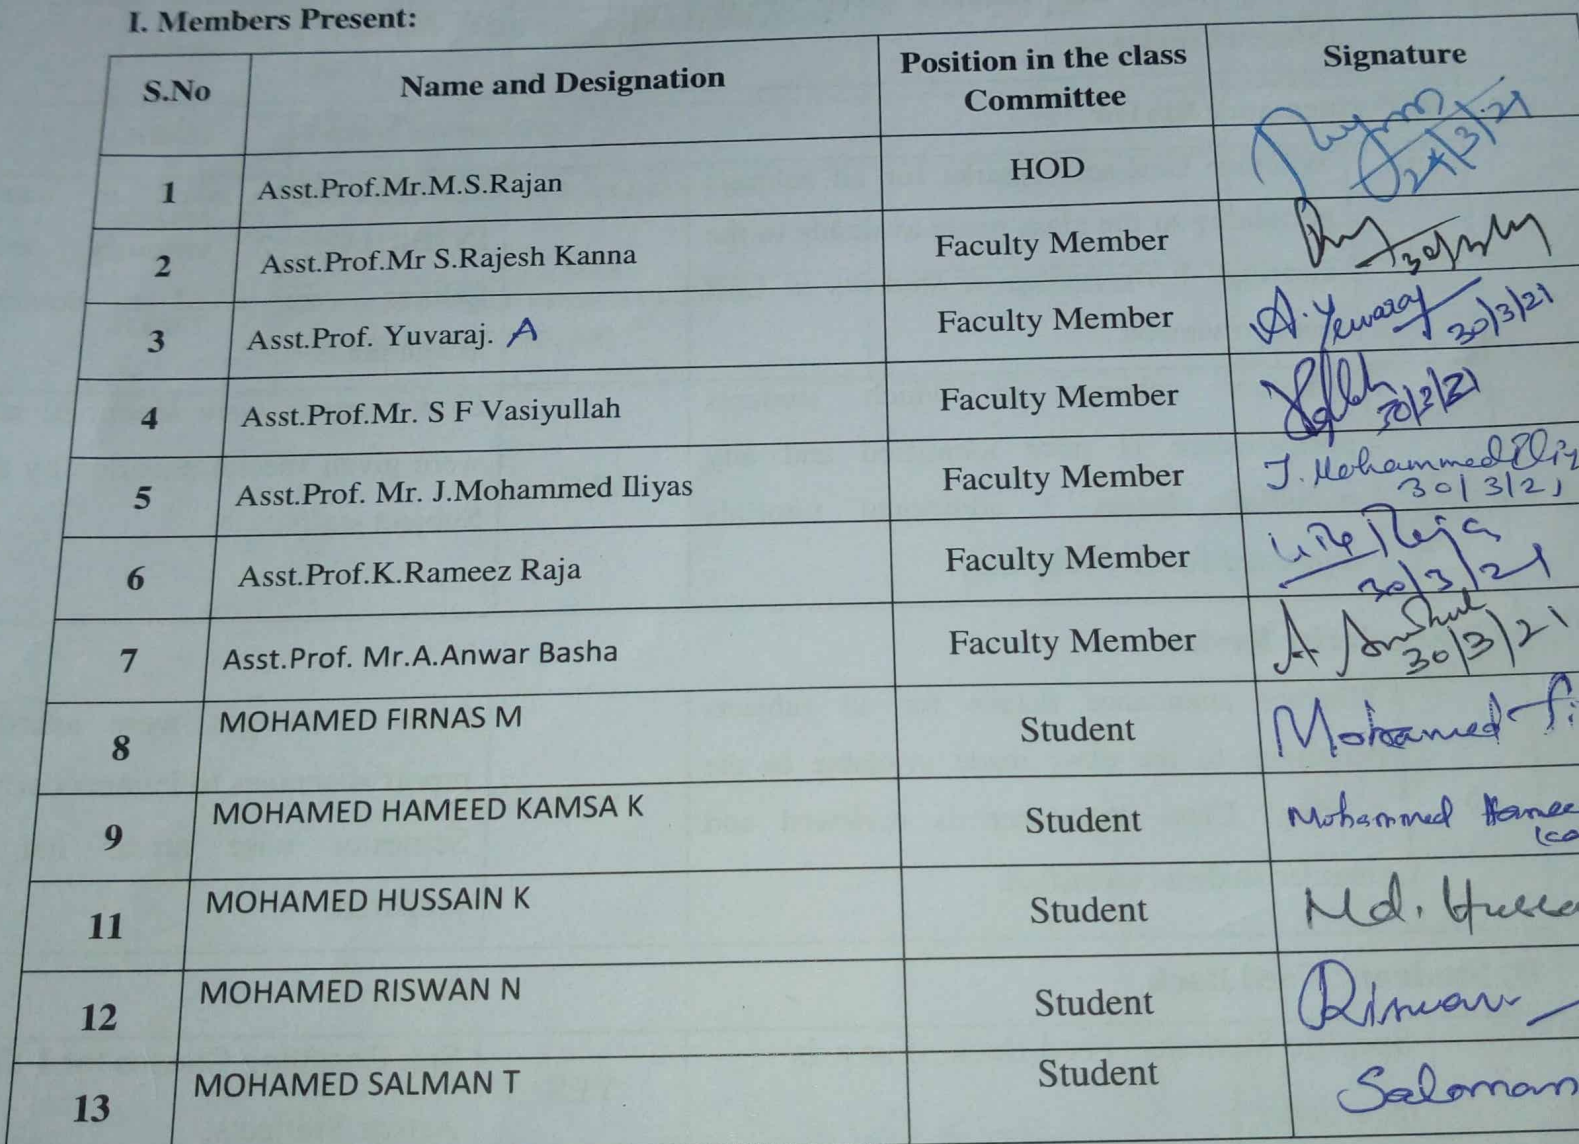 I. Members Present:
S.No Name and Designation Position in the class Committee Signature
1 Asst.Prof.Mr.M.S.Rajan HOD 24/3/21
2 Asst.Prof.Mr S.Rajesh Kanna Faculty Member
3 Asst.Prof. Yuvaraj. A Faculty Member A. Yuvaraj 30/3/21
4 Asst.Prof.Mr. S F Vasiyullah Faculty Member 30/3/21
5 Asst.Prof. Mr. J.Mohammed Iliyas Faculty Member J. Mohammed 30/3/21
6 Asst.Prof.K.Rameez Raja Faculty Member Raja 30/3/21
7 Asst.Prof. Mr.A.Anwar Basha Faculty Member A 30/3/21
8 MOHAMED FIRNAS M Student Mohamed Fi
9 MOHAMED HAMEED KAMSA K Student Mohammed Hamee
11 MOHAMED HUSSAIN K Student Md. Hussa
12 MOHAMED RISWAN N Student Riswan
13 MOHAMED SALMAN T Student Saloman